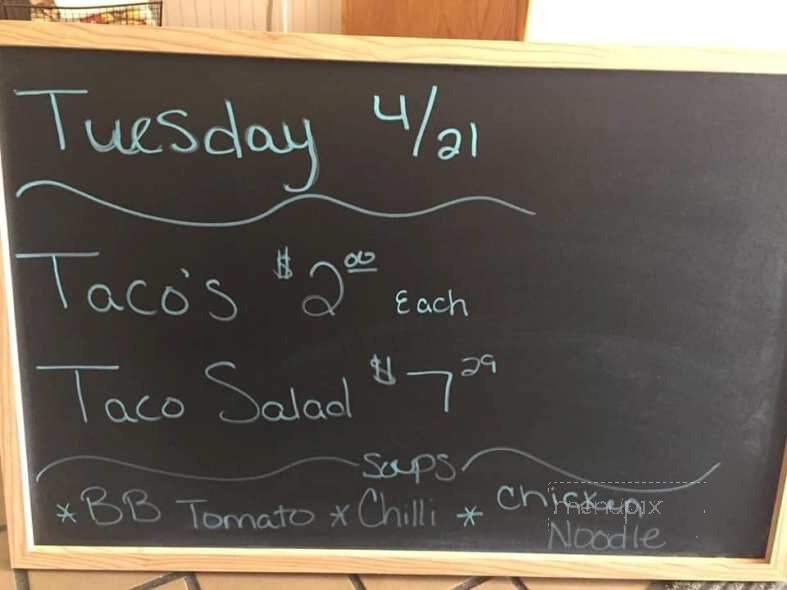 Tuesday 4/21
Taco's $2.00 Each
Taco Salad $7.29
Soups
* BB Tomato * Chilli * Chicken
Noodle
menupix